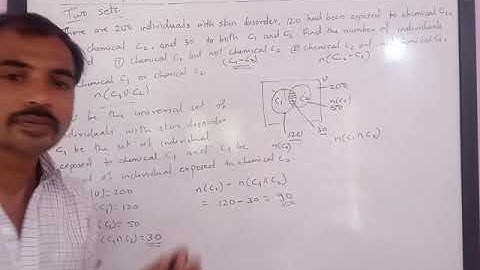 Two sets
are 200 individuals with skin disorder, 120 had been exposed to chemical C₁,
chemical C₂, and 30 to both C₁ and C₂ Find the number of individuals
① chemical C₁ but not chemical C₂ ② chemical C₂ but not chemical C₁
(C₁-C₂) n(C₂-C₁)
chemical C₁ or chemical C₂
n(C₁∪C₂)
U
200
C₁ C₂
n(C₂)
50
30
120
n(C₁)
n(C₁∩C₂)
be the universal set of
individuals with skin disorder
C₁ be the set of individual
exposed to chemical C₁ and C₂ be
of individual exposed to chemical C₂.
(U)=200
(C₁)=120
(C₂)=50
(C₁∩C₂)=30
n(C₁) - n(C₁∩C₂)
= 120-30 = 90